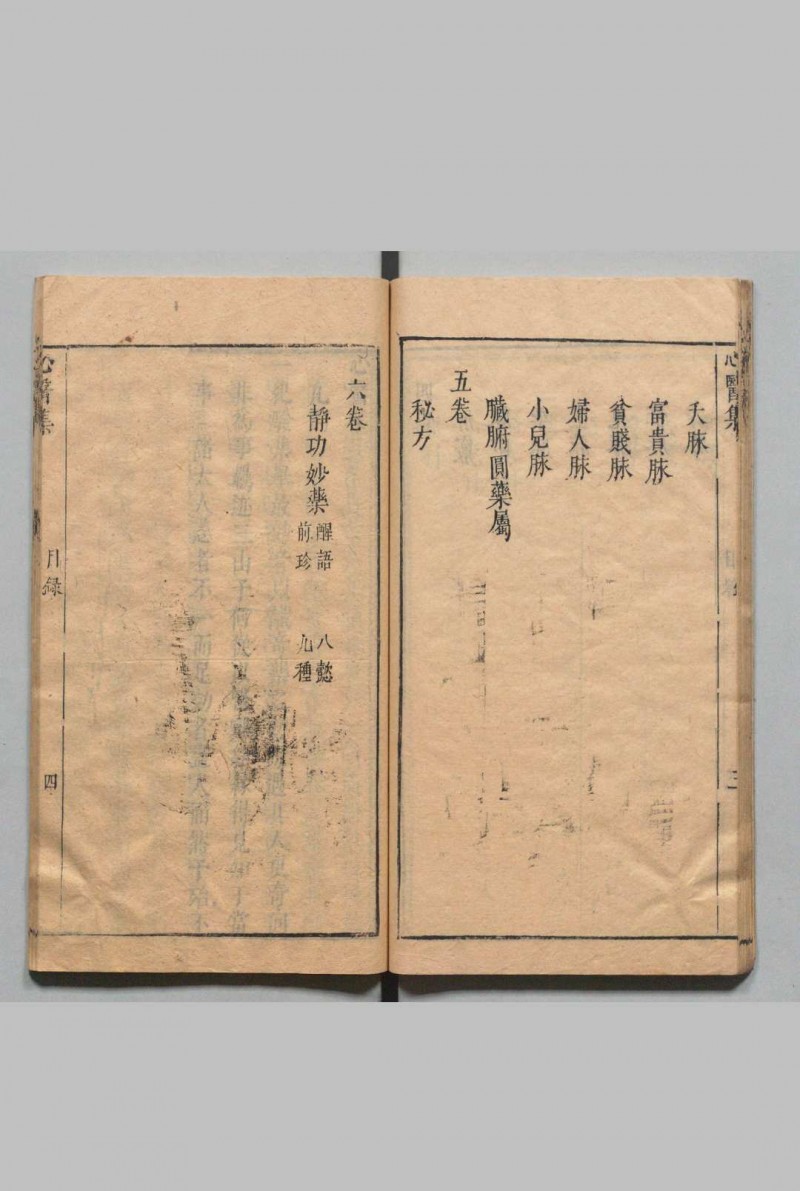 心醫集
三
夭脉
富貴脉
貧賤脉
婦人脉
小兒脉
臟腑圓藥屬
五卷
秘方
六卷
靜功妙藥
醒語 八懿
前珍 九種
心醫集
目錄
四